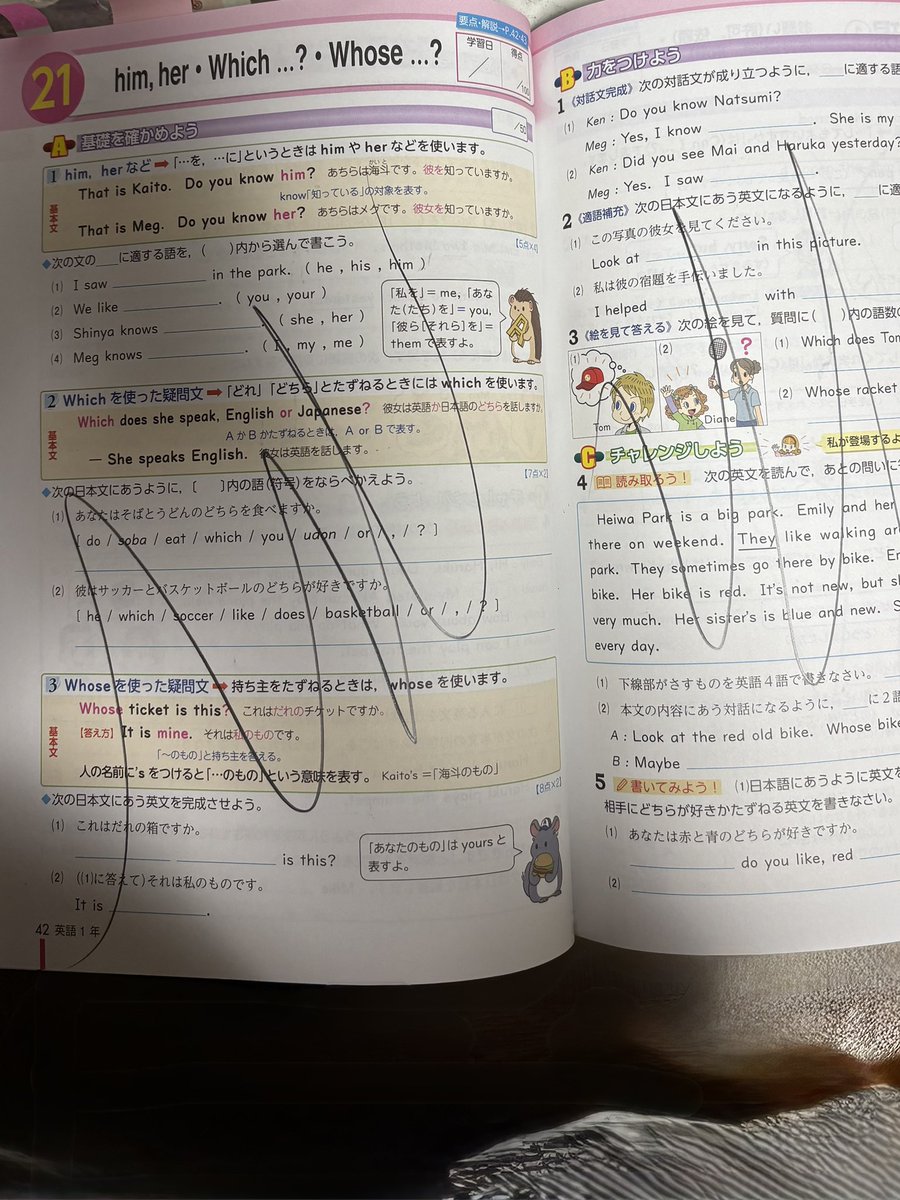 要点・解説→P.42・43
21 him, her・Which ...?・Whose ...?
学習日 得点
/ /100
A 基礎を確かめよう /50
1 him, her など➡「…を, …に」というときは him や her などを使います。
基本文
かいと
That is Kaito. Do you know him? あちらは海斗です。彼を知っていますか。
know「知っている」の対象を表す。
That is Meg. Do you know her? あちらはメグです。彼女を知っていますか。
◆次の文の＿＿に適する語を, ( )内から選んで書こう。【5点×4】
(1) I saw ＿＿＿ in the park. ( he , his , him )
(2) We like ＿＿＿. ( you , your )
(3) Shinya knows ＿＿＿. ( she , her )
(4) Meg knows ＿＿＿. ( I , my , me )
「私を」= me,「あな
た(たち)を」= you,
「彼ら[それら]を」=
them で表すよ。
2 Which を使った疑問文➡「どれ」「どちら」とたずねるときには which を使います。
基本文
Which does she speak, English or Japanese? 彼女は英語か日本語のどちらを話しますか。
A か B かたずねるときは, A or B で表す。
— She speaks English. 彼女は英語を話します。
【7点×2】
◆次の日本文にあうように, [ ]内の語(符号)をならべかえよう。
(1) あなたはそばとうどんのどちらを食べますか。
[ do / soba / eat / which / you / udon / or / , / ? ]
(2) 彼はサッカーとバスケットボールのどちらが好きですか。
[ he / which / soccer / like / does / basketball / or / , / ? ]
3 Whose を使った疑問文➡持ち主をたずねるときは, whose を使います。
基本文
Whose ticket is this? これはだれのチケットですか。
【答え方】 It is mine. それは私のものです。
「〜のもの」と持ち主を答える。
人の名前に's をつけると「…のもの」という意味を表す。 Kaito's =「海斗のもの」
【8点×2】
◆次の日本文にあう英文を完成させよう。
(1) これはだれの箱ですか。
＿＿＿ ＿＿＿ is this?
(2) ((1)に答えて)それは私のものです。
It is ＿＿＿.
「あなたのもの」は yours と
表すよ。
42 英語1年
B 力をつけよう
1《対話文完成》次の対話文が成り立つように, ＿＿に適する語
(1) Ken : Do you know Natsumi?
Meg : Yes, I know ＿＿＿. She is my
(2) Ken : Did you see Mai and Haruka yesterday?
Meg : Yes. I saw ＿＿＿.
2《適語補充》次の日本文にあう英文になるように, ＿＿に適
(1) この写真の彼女を見てください。
Look at ＿＿＿ in this picture.
(2) 私は彼の宿題を手伝いました。
I helped ＿＿＿ with
3《絵を見て答える》次の絵を見て, 質問に( )内の語数の
(1) (2) ?
Tom Diane
(1) Which does Tom
(2) Whose racket
C チャレンジしよう
私が登場するよ
4 読み取ろう! 次の英文を読んで, あとの問いに
Heiwa Park is a big park. Emily and her
there on weekend. They like walking ar
park. They sometimes go there by bike. Em
bike. Her bike is red. It's not new, but sh
very much. Her sister's is blue and new. S
every day.
(1) 下線部がさすものを英語4語で書きなさい。
(2) 本文の内容にあう対話になるように, ＿＿に2語
A : Look at the red old bike. Whose bike
B : Maybe ＿＿＿
5 書いてみよう! (1)日本語にあうように英文を
相手にどちらが好きかたずねる英文を書きなさい。
(1) あなたは赤と青のどちらが好きですか。
＿＿＿ do you like, red ＿＿＿
(2) ＿＿＿